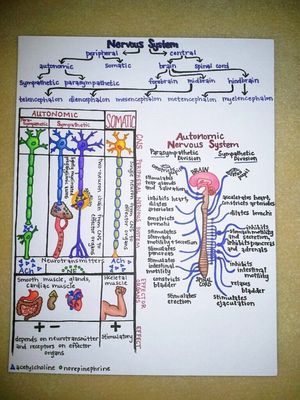 Nervous System
peripheral central
autonomic somatic brain spinal cord
Sympathetic parasympathetic forebrain midbrain hindbrain
telencephalon diencephalon mesencephalon metencephalon myelencephalon
AUTONOMIC
Sympathetic
SOMATIC
CNS
Peripheral nervous system
Two-neuron chain from CNS to effector organs
Single neuron from CNS to effector organs
Neurotransmitters
ACh
ACh
Smooth muscle, glands, cardiac muscle
Skeletal muscle
EFFECTOR ORGANS
+ -
+
depends on neurotransmitter and receptors on effector organs
Stimulatory
EFFECT
acetylcholine norepinephrine
Autonomic
Nervous System
Parasympathetic Division
Sympathetic Division
BRAIN
stimulates tear glands and salivation
inhibits heart, dilates arterioles
constricts bronchi
stimulates stomach motility & secretion
stimulates pancreas
stimulates intestinal motility
constricts bladder
stimulates erection
SPINAL CORD
accelerates heart, constricts arterioles
dilates bronchi
inhibits stomach motility and secretion
inhibits pancreas and adrenals
inhibits intestinal motility
relaxes bladder
stimulates ejaculation